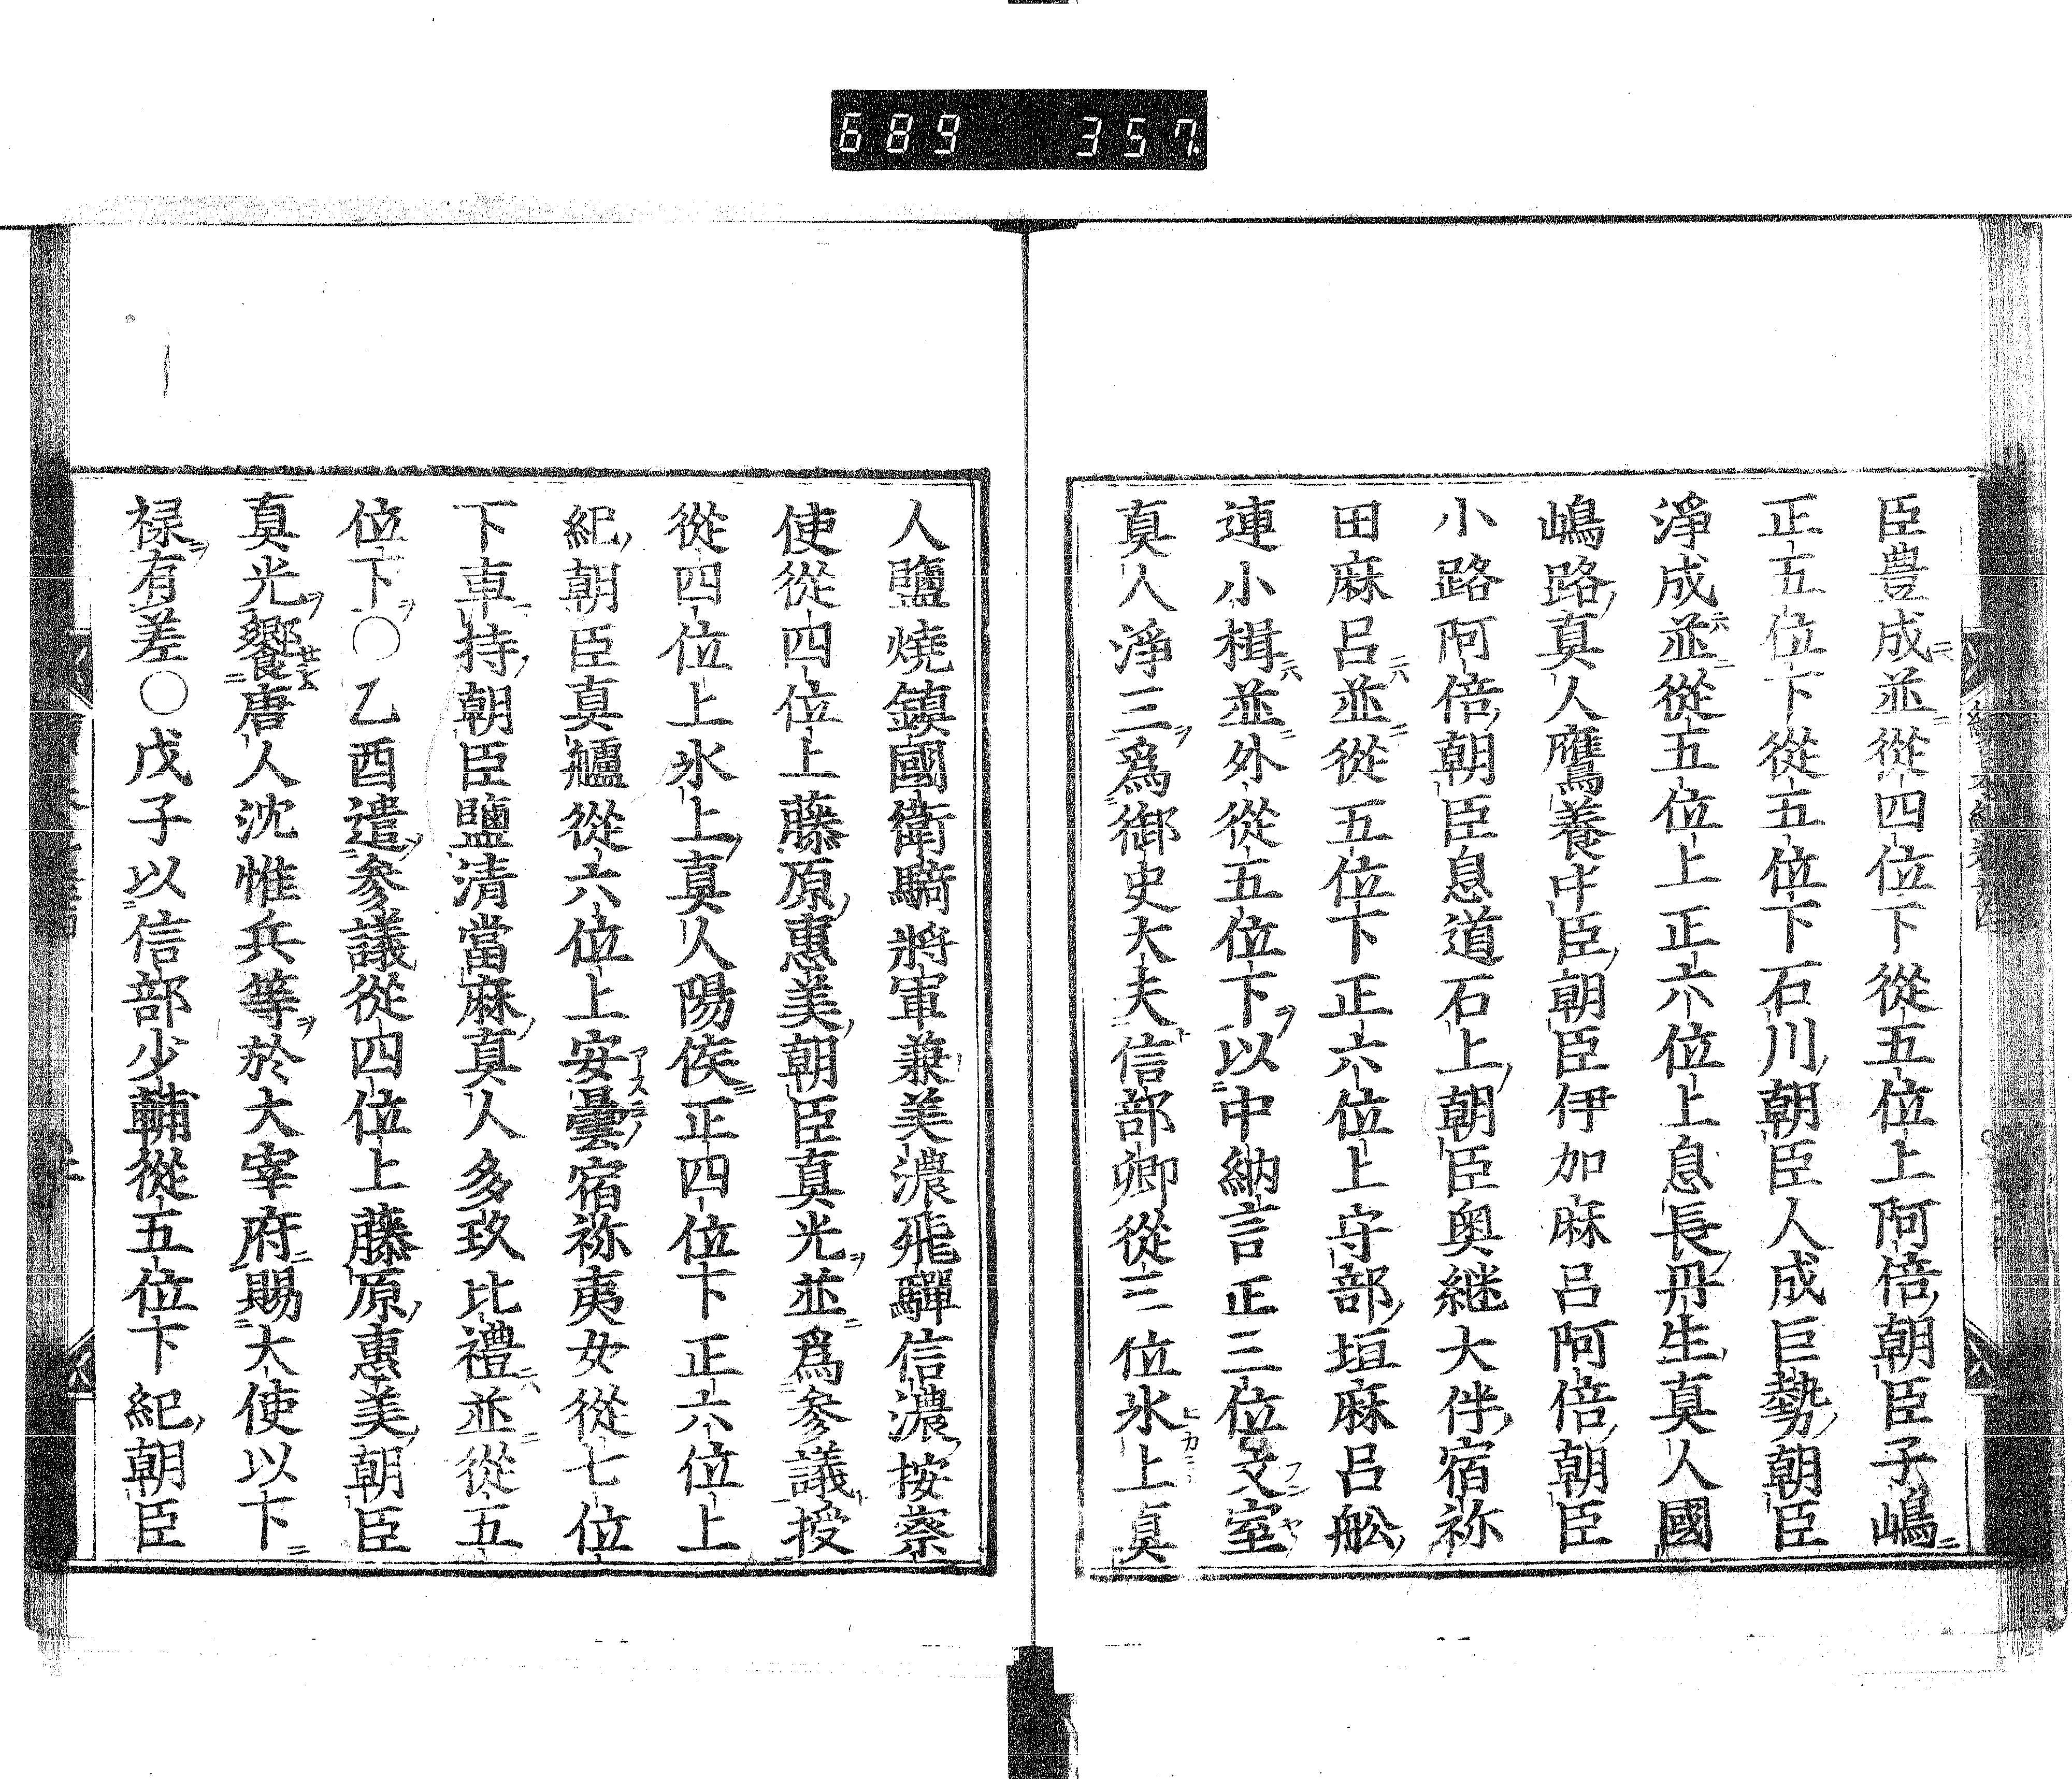 689 357
臣豊成並從四位下從五位上阿倍朝臣子嶋
正五位下從五位下石川朝臣人成巨勢朝臣
淨成並從五位上正六位上息長丹生真人國
嶋路真人鷹養中臣朝臣伊加麻呂阿倍朝臣
小路阿倍朝臣息道石上朝臣奥継大伴宿祢
田麻呂並從五位下正六位上守部垣麻呂舩
連小楫並外從五位下以中納言正三位文室
真人淨三爲御史大夫信部卿從三位氷上真
人鹽燒鎮國衛騎將軍兼美濃飛驒信濃按察
使從四位上藤原惠美朝臣真光並爲參議授
從四位上氷上真人陽侯正四位下正六位上
紀朝臣真艫從六位上安曇宿祢夷女從七位
下車持朝臣鹽清當麻真人多玖比禮並從五
位下〇乙酉遣參議從四位上藤原惠美朝臣
真光饗唐人沈惟兵等於大宰府賜大使以下
禄有差〇戊子以信部少輔從五位下紀朝臣